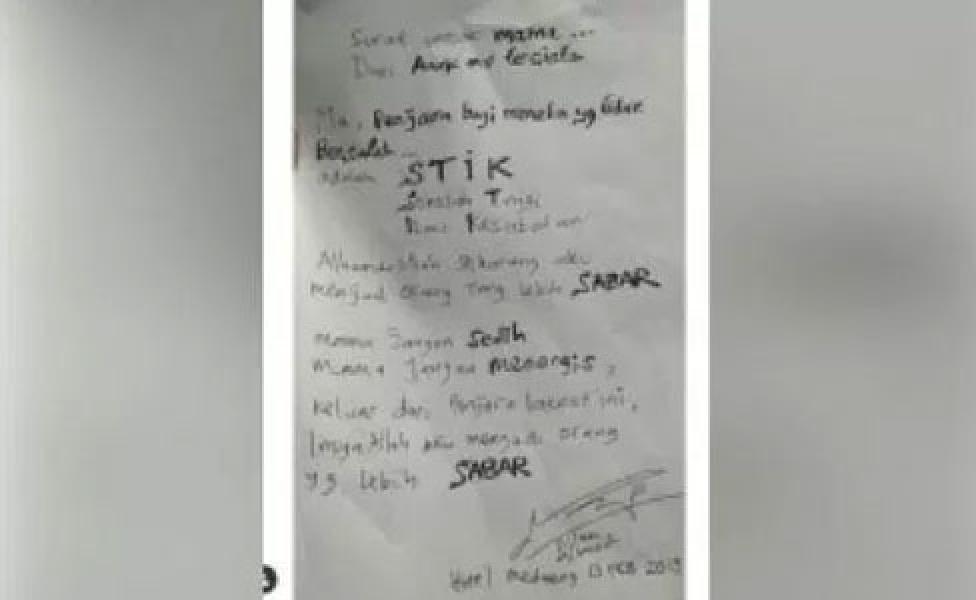 Surat untuk mama ...
Dari Anak mu
Ma, Penjara bagi mereka yg tidak
Bersalah ...
adalah STiK
Sekolah Tinggi
Ilmu Kesabaran
Alhamdulillah Sekarang aku
menjadi orang yang lebih SABAR
mama Jangan Sedih
mama Jangan menangis,
Keluar dari Penjara ini,
Insya Allah aku menjadi orang
yg lebih SABAR
Medaeng 13 FEB 2019